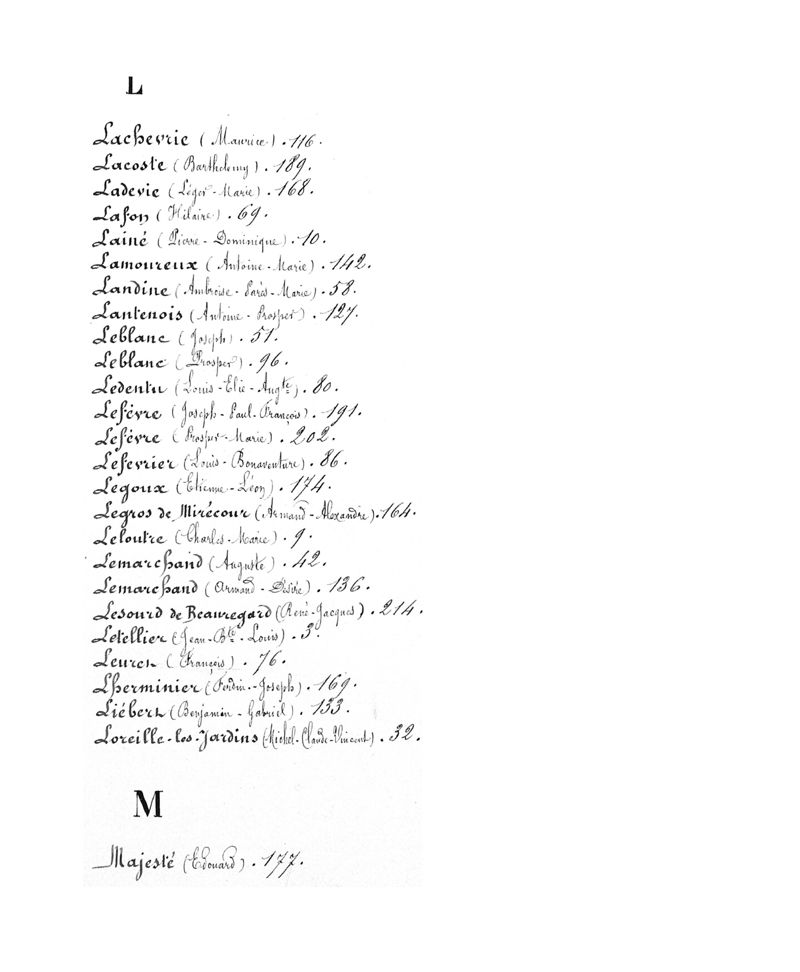 L
Lachevrie (Maurice). 116.
Lacoste (Barthelemy). 189.
Ladevie (Léger-Marie). 168.
Lafon (Hilaire). 69.
Lainé (Pierre-Dominique). 10.
Lamoureux (Antoine-Marie). 142.
Landine (Ambroise-Paris-Marie). 58.
Lantenois (Antoine-Prosper). 127.
Leblanc (Joseph). 51.
Leblanc (Prosper). 96.
Ledentu (Louis-Elie-Augte). 80.
Lefèvre (Joseph-Paul-François). 191.
Lefèvre (Prosper-Marie). 202.
Lefevrier (Louis-Bonaventure). 86.
Legoux (Etienne-Léon). 174.
Legros de Mirécour (Armand-Alexandre). 164.
Leloutre (Charles-Marie). 9.
Lemarchand (Auguste). 42.
Lemarchand (Armand-Désiré). 136.
Lesourd de Beauregard (René-Jacques). 214.
Letellier (Jean-Bte-Louis). 3.
(François). 76.
Lherminier (Ferdin.-Joseph). 169.
Liébert (Benjamin-Gabriel). 133.
Loreille-les-Jardins (Michel-Claude-Vincent). 32.
M
Majesté (Edouard). 177.